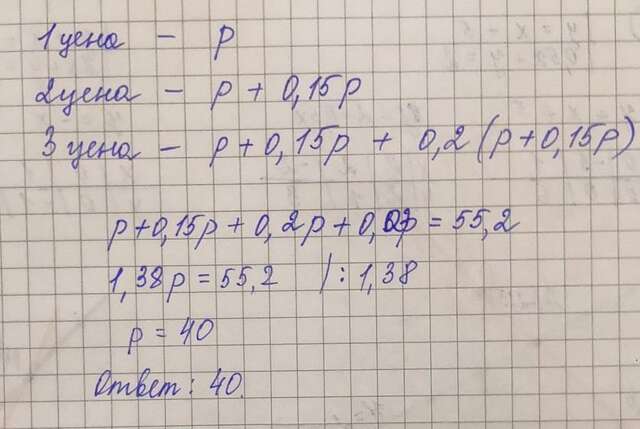 1 цена – p
2 цена – p + 0,15p
3 цена – p + 0,15p + 0,2 (p + 0,15p)
p + 0,15p + 0,2p + 0,03p = 55,2
1,38p = 55,2 / : 1,38
p = 40
Ответ: 40.